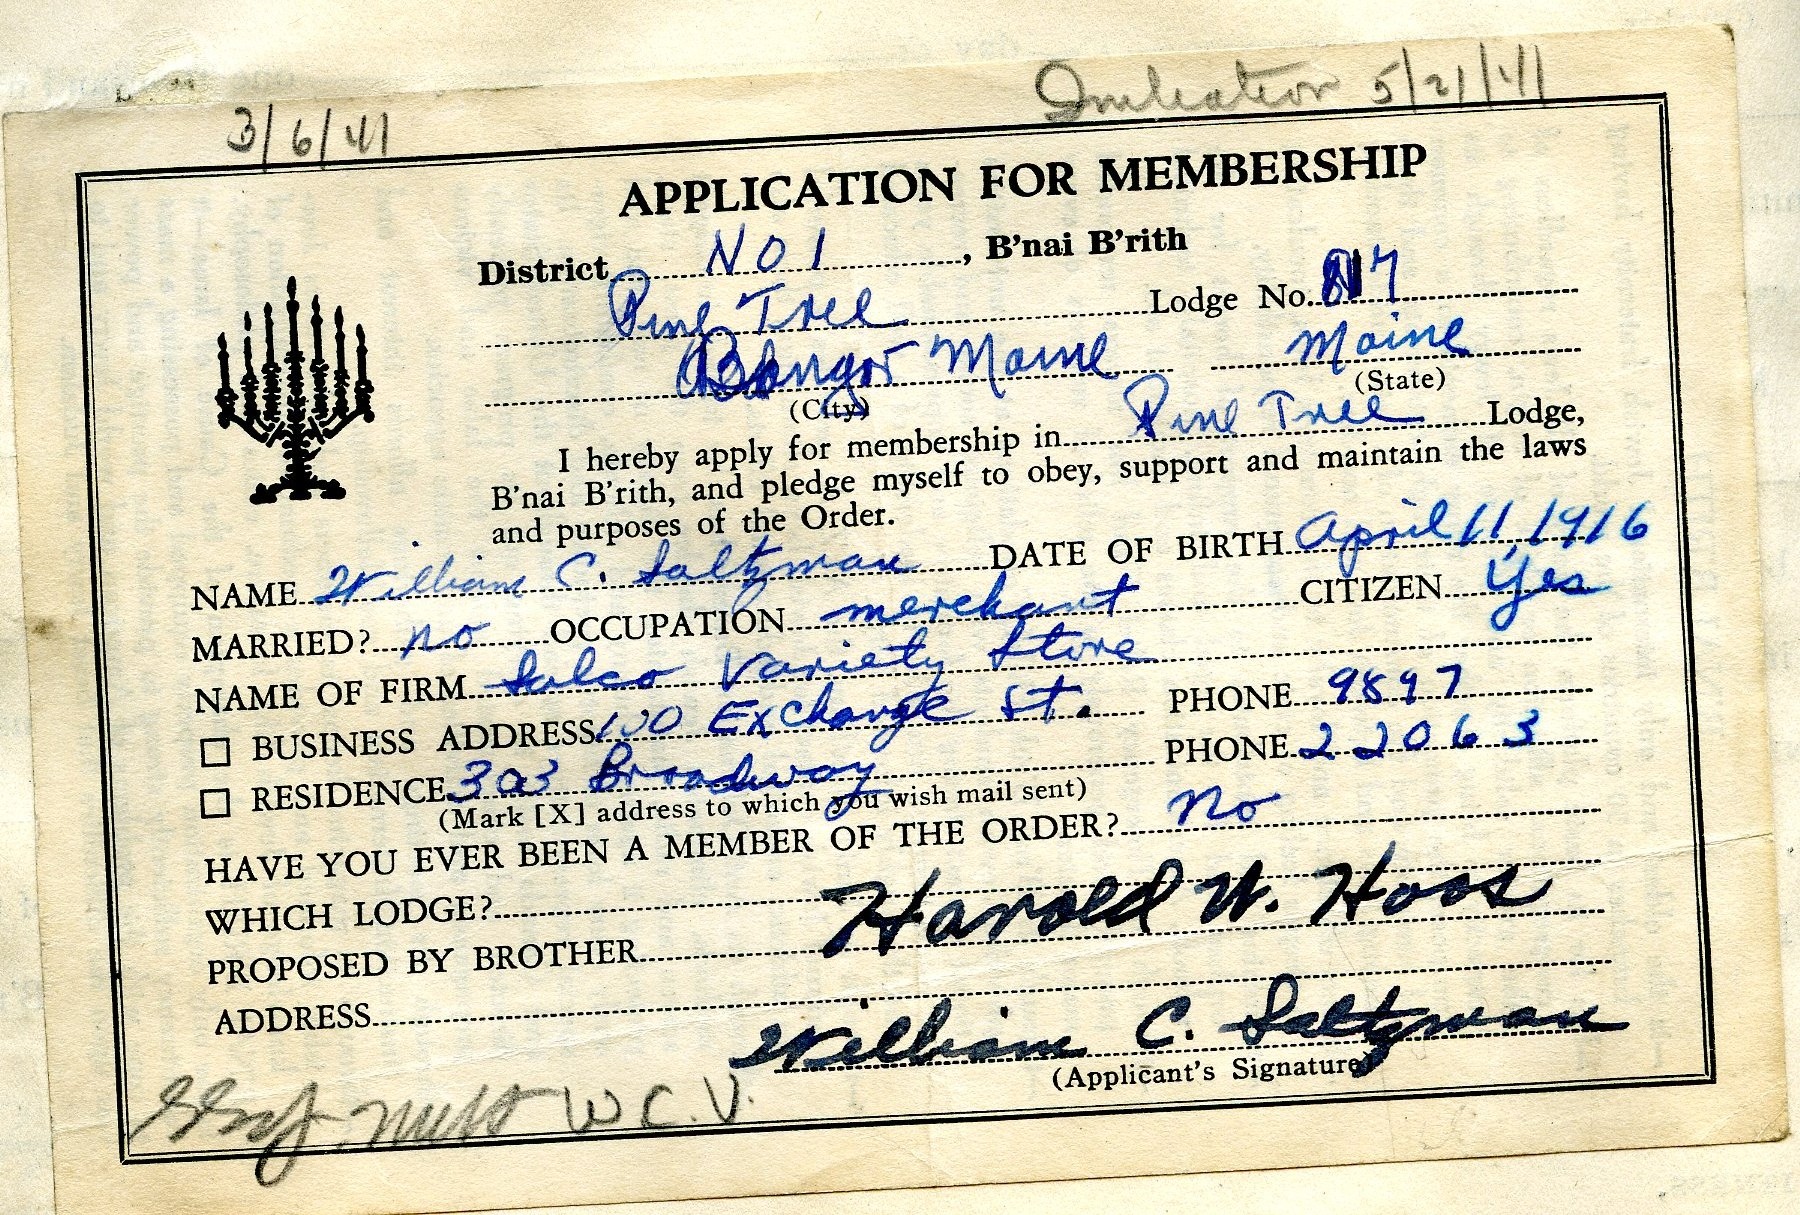 3/6/41
Initiation 5/21/41
APPLICATION FOR MEMBERSHIP
District NO 1, B'nai B'rith
Pine Tree Lodge No. 817
Bangor Maine Maine
(City) (State)
I hereby apply for membership in Pine Tree Lodge,
B'nai B'rith, and pledge myself to obey, support and maintain the laws
and purposes of the Order.
NAME William C. Saltzman DATE OF BIRTH April 11, 1916
MARRIED? no OCCUPATION merchant CITIZEN Yes
NAME OF FIRM Salco Variety Store
BUSINESS ADDRESS 100 Exchange St. PHONE 9897
RESIDENCE 303 Broadway PHONE 22063
(Mark [X] address to which you wish mail sent)
HAVE YOU EVER BEEN A MEMBER OF THE ORDER? no
WHICH LODGE?
PROPOSED BY BROTHER Harold W. Hoos
ADDRESS
William C. Saltzman
(Applicant's Signature)
W C. V.